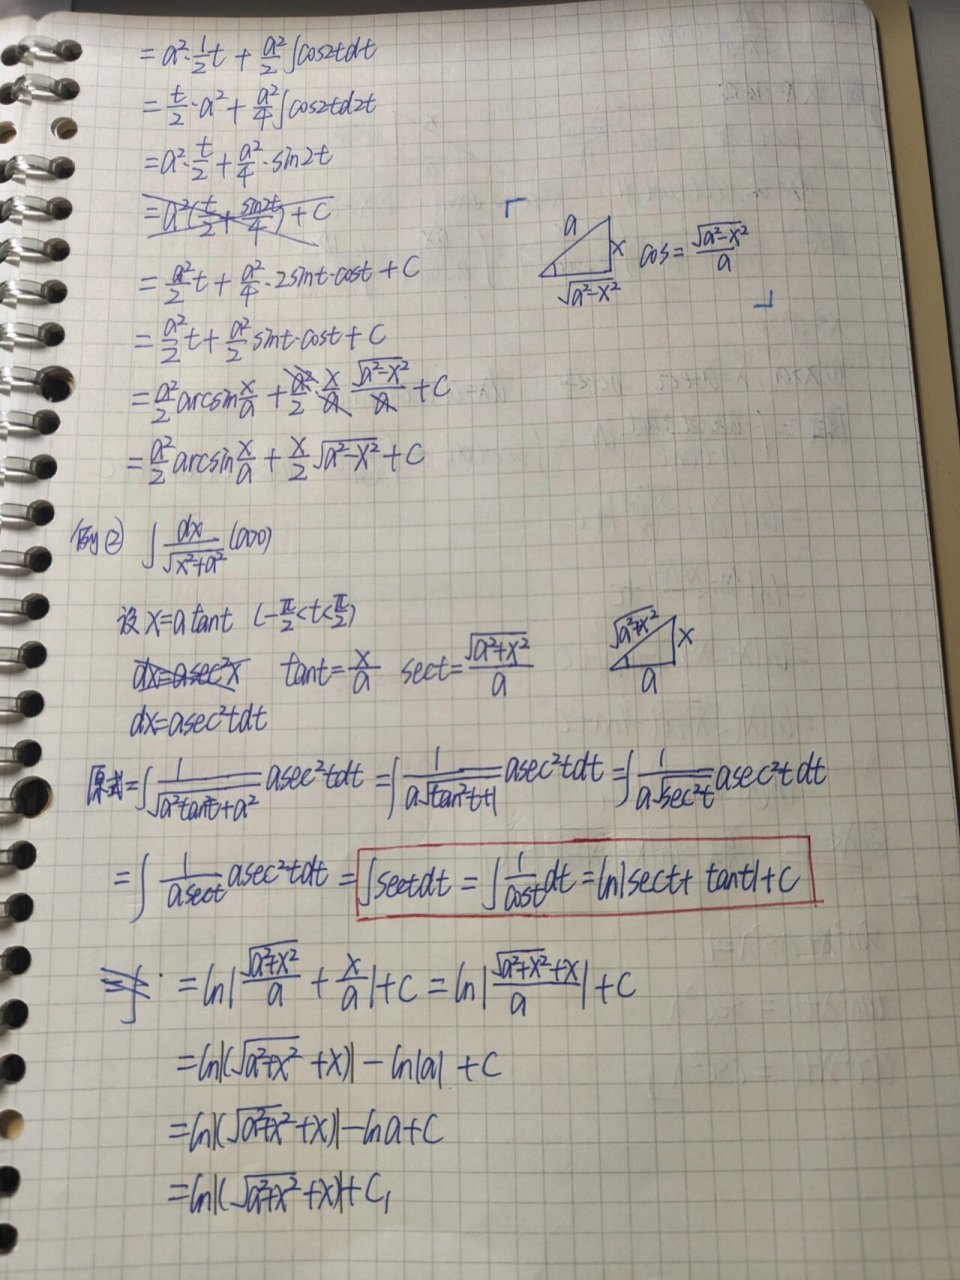 = a²·1/2 t + a²/2 ∫cos2tdt
= t/2·a² + a²/4 ∫cos2td2t
= a²·t/2 + a²/4·sin2t
= a²(t/2 + sin2t/4) + C
= a²/2·t + a²/4·2sint·cost + C
= a²/2 t + a²/2 sint·cost + C
= a²/2 arcsin x/a + a²/2 x/a √(a²-x²)/a + C
= a²/2 arcsin x/a + x/2 √(a²-x²) + C
a x √(a²-x²) cos = √(a²-x²)/a
例② ∫ dx/√(x²+a²) (a>0)
设 x=a tant (-π/2<t<π/2)
dx=asec²x tant = x/a sect = √(a²+x²)/a
√(a²+x²) x a
dx=asec²tdt
原式=∫ 1/√(a²tan²t+a²) asec²tdt = ∫ 1/(a√(tan²t+1)) asec²tdt = ∫ 1/(a√(sec²t)) asec²t dt
= ∫ 1/(asect) asec²tdt = ∫sectdt = ∫ 1/cost dt = ln|sect+ tant|+C
= ln|√(a²+x²)/a + x/a|+C = ln|(√(a²+x²)+x)/a|+C
= ln|(√(a²+x²) +x)| - ln|a| + C
= ln|(√(a²+x²)+x)|-lna+C
= ln|(√(a²+x²)+x)|+C₁